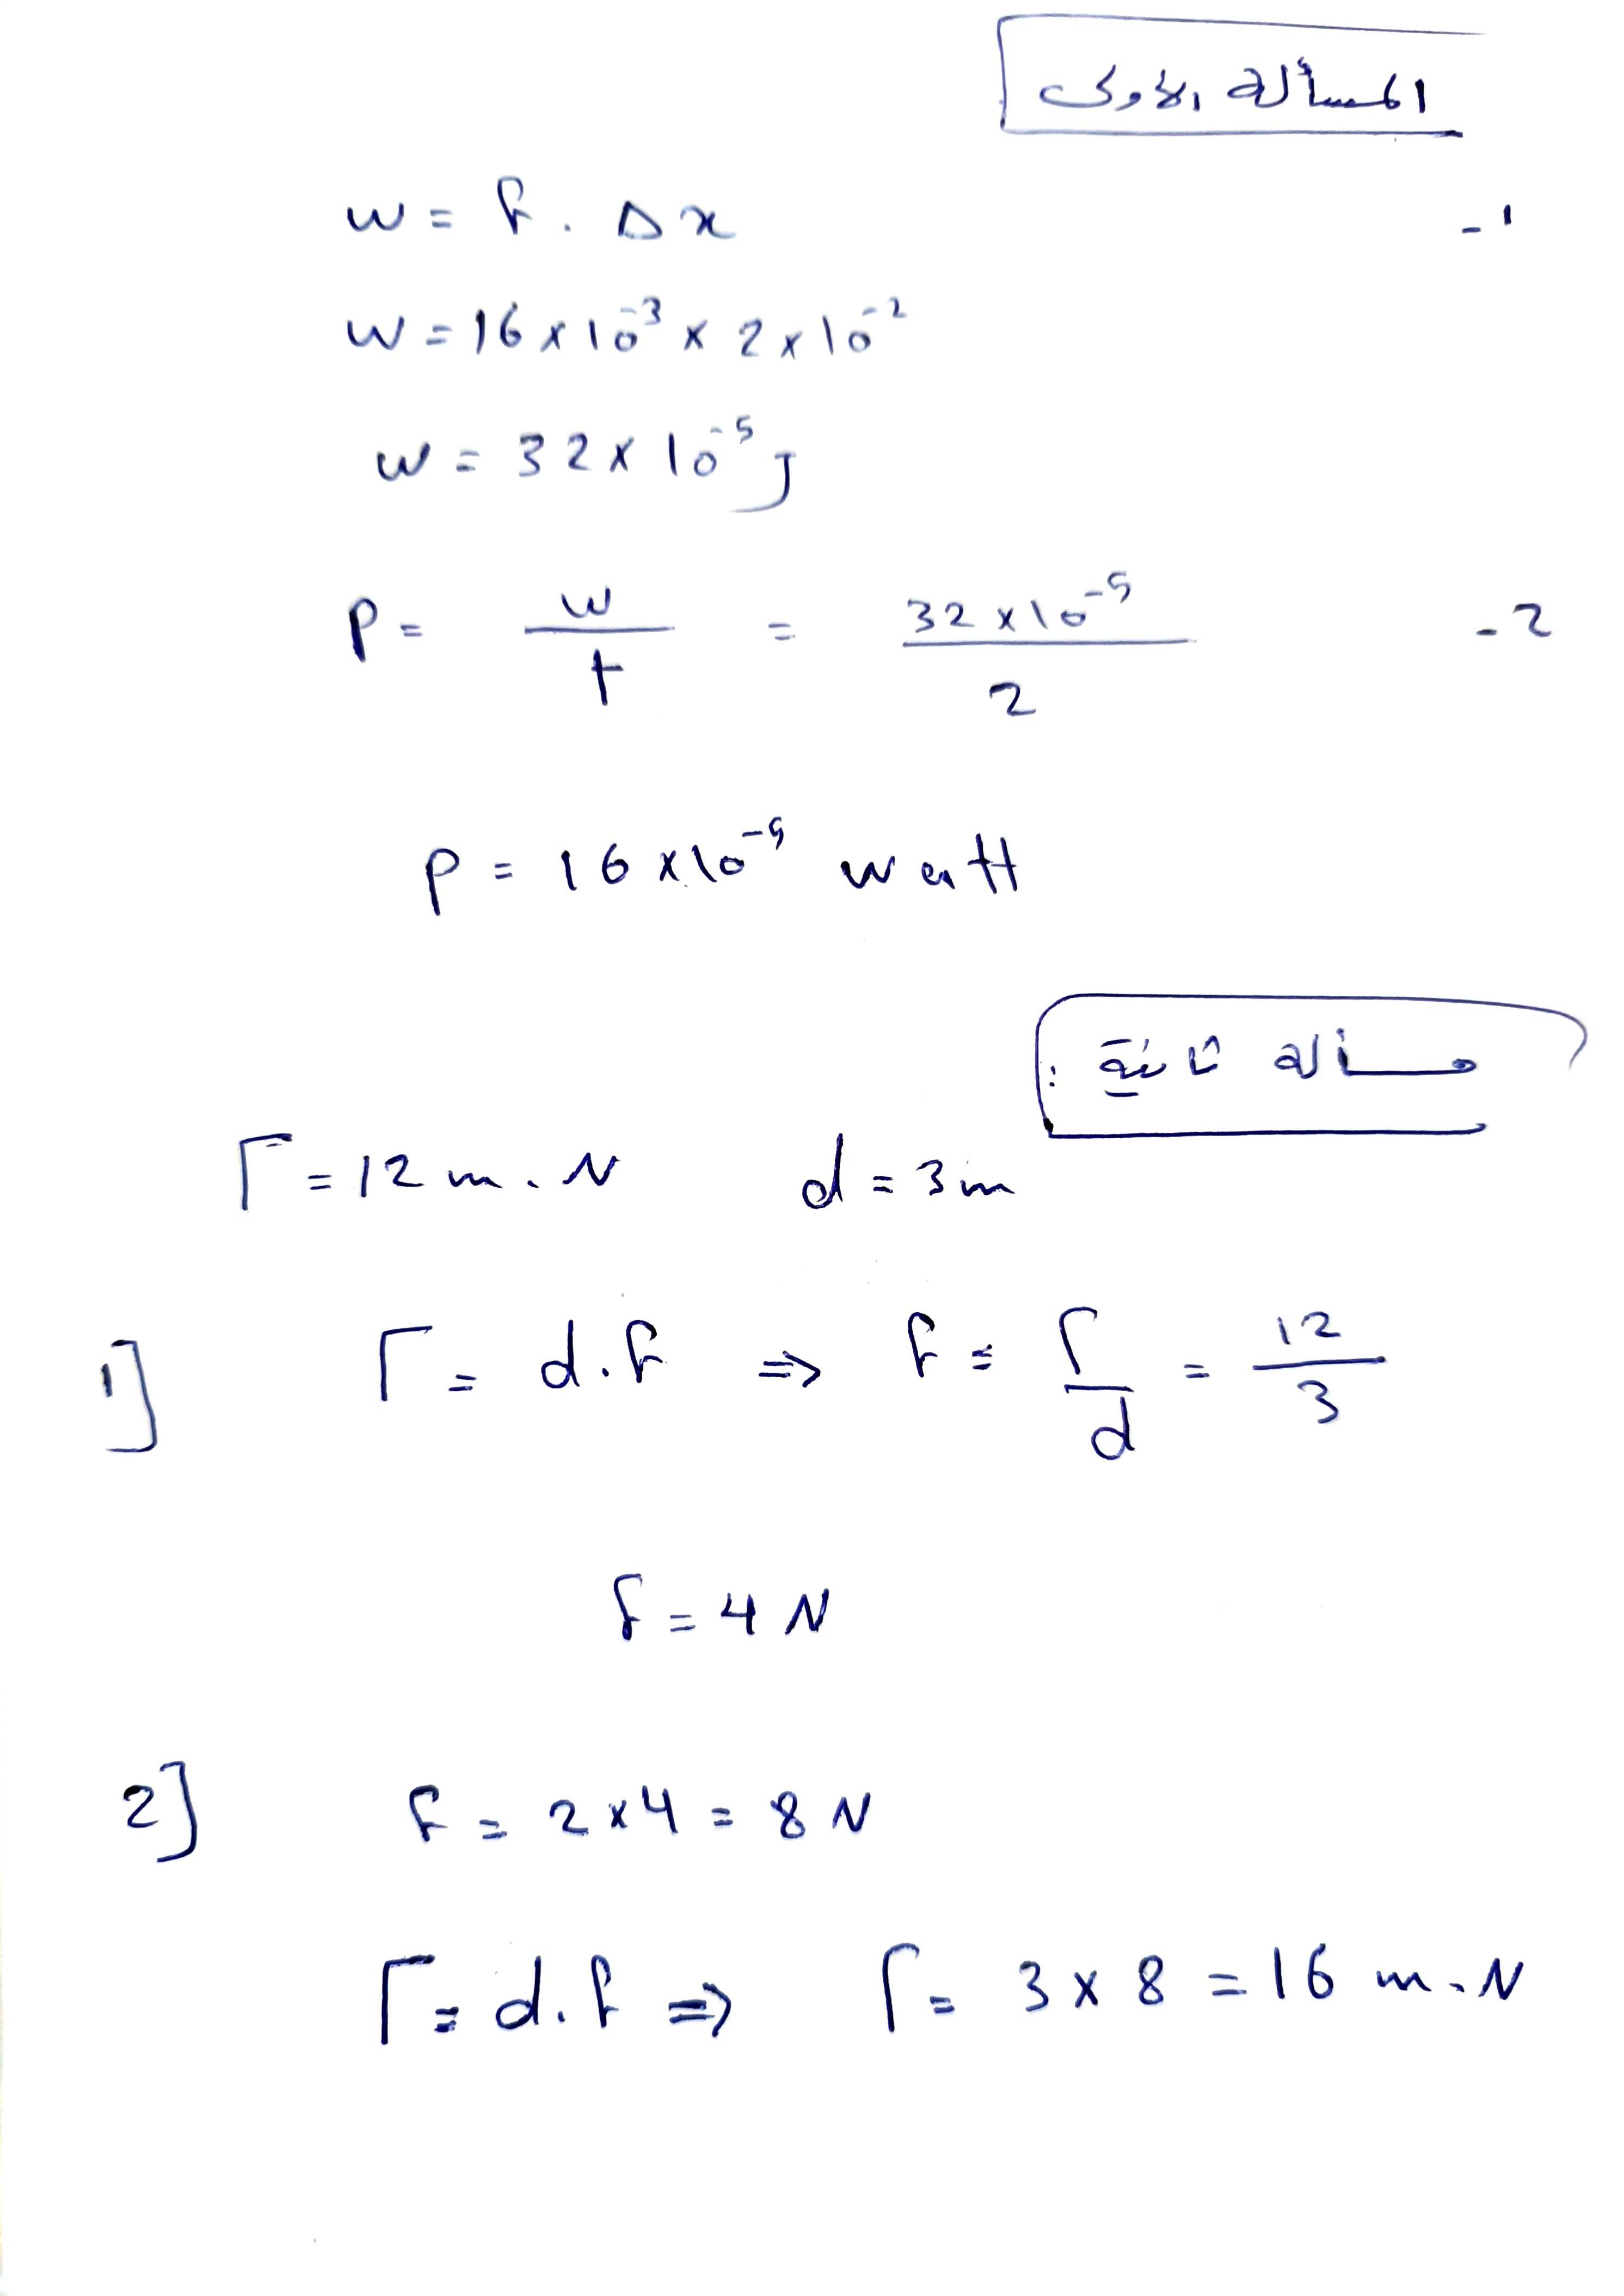 المسألة الأولى
1- w = F . Δx
w = 16 x 10^-3 x 2 x 10^-2
w = 32 x 10^-5 J
2- P = w / t = 32 x 10^-5 / 2
P = 16 x 10^-5 watt
مسألة ثانية :
Γ = 12 m . N d = 3 m
1] Γ = d . F => F = Γ / d = 12 / 3
F = 4 N
2] F = 2 x 4 = 8 N
Γ = d . F => Γ = 3 x 8 = 16 m . N